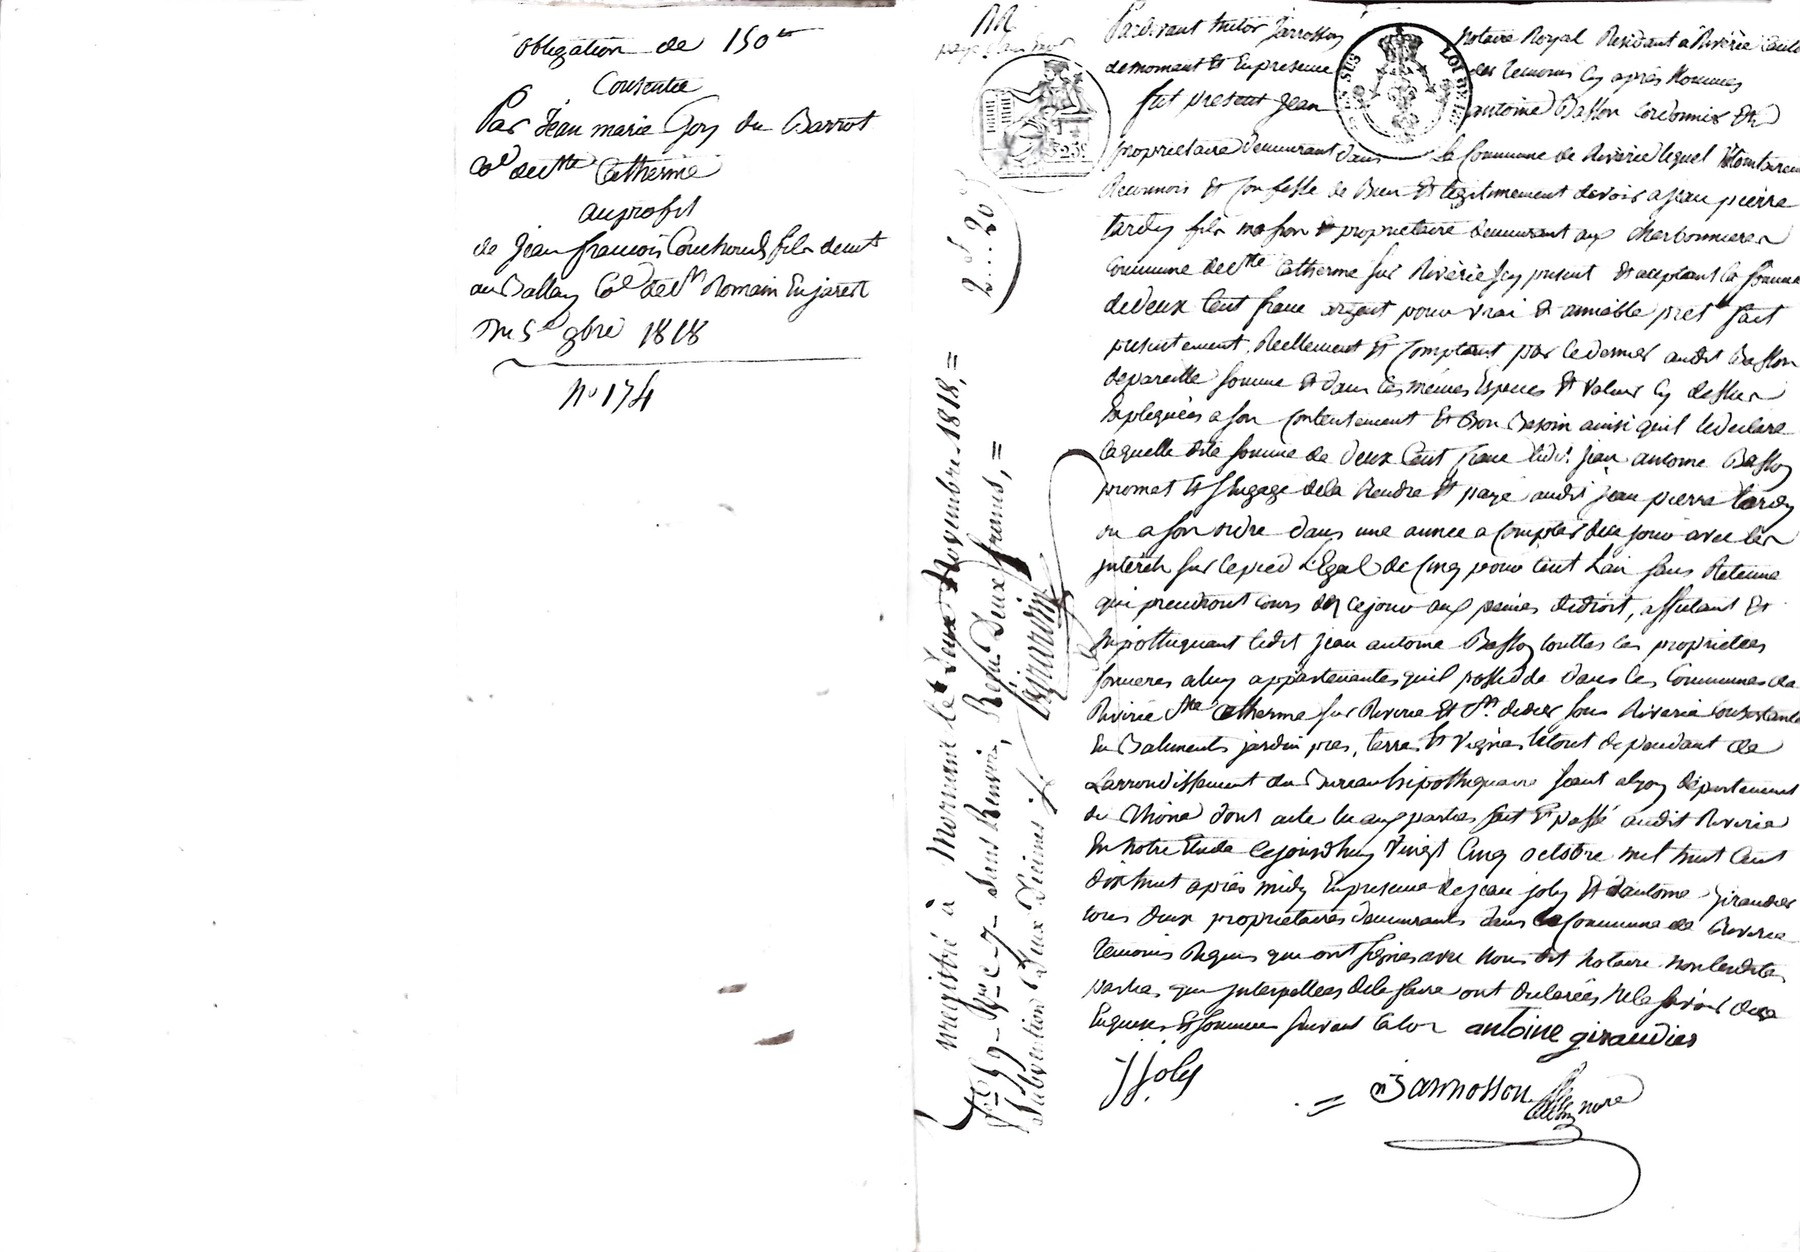 obligation de 150 tt
Consentie
Par Jean marie Goy du Barrot
Co.ne de Ste Catherine
au profit
de Jean francois Couchoud fils demt
au Ballay Cone de St Romain En jarest
Du 5e 9bre 1818
No 174
Pardevant hector Jarrosson notaire Royal Residant a Riverie canton
de mornant Et En presence des temoins Cy après Nommés
fut present Jean antoine Basson cordonnier Et
proprietaire demeurant dans la Commune de Riverie lequel
Reconnois Et Confesse de Bien Et légitimement devoir a Jean pierre
tardy fils masson Et proprietaire demeurant aux charbonnieres
Commune de Ste Catherine sur Riverie Icy present Et aceptant la somme
de deux Cent franc argent pour vrai Et amiable pret fait
presentement, Réellement Et Comptant par ce dernier audit Basson
de pareille somme Et dans les mêmes Espèces Et valeur Cy dessus
Expliquées a son Contentement Et Bon Besoin ainsi quil le declare
laquelle dite somme de deux Cent franc ledit Jean antoine Basson
promet Et s'Engage de la Rendre Et payé audit Jean pierre tardy
ou a son ordre dans une année a compter de ce jour avec les
Interets sur le pied Légal de Cinq pour Cent L'an sans Retenue
qui prendront cours dès ce jour aux peines de droit, affectant Et
hipothequant ledit Jean antoine Basson touttes les proprietées
foncieres a luy appartenantes quil possedde dans les Communes de
Riverie Ste Catherine sur Riverie Et St didier sous Riverie Consistantes
En Batiments jardin pres, terres Et vignes le tout dependant de
Larrondissement du Bureau hipothequaire seant a lyon département
du Rhône dont acte lu aux parties fait Et passé audit Riverie
En notre Etude Cejourdhuy vingt Cinq octobre mil huit Cent
dix huit après midy En presence de Jean joly Et d'antoine Giraudier
tous deux proprietaires demeurants dans la Commune de Riverie
temoins Requis qui ont signés avec Nous dit Notaire non lesdites
parties qui Interpellées de le faire ont declarées ne le savoir de ce
Enquises Et sommées suivant la loi antoine giraudier
J joly
Jarrosson nore
Enregistré à Mornant le deux Novembre 1818, =
sans Renvoi, Reçu deux francs, =
Subvention deux Décimes
2 .. 20